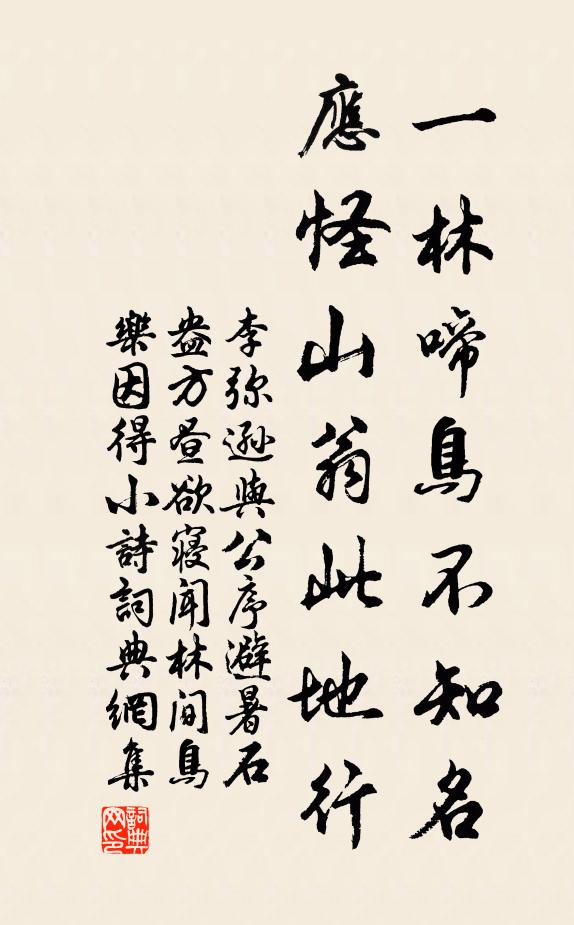 一林啼鳥不知名
應怪山翁此地行
李弥遜與公序避暑石
盎方昼欲寢聞林間鳥
樂因得小詩詞典網集
詞典网印